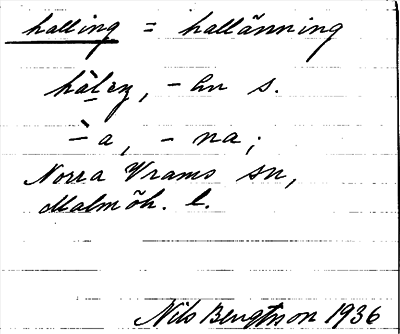 halling = hallänning
hàlEŋ, -En s.
-̀a, -na;
Norra Vrams sn,
Malmöh. l.
Nils Bengtsson 1936